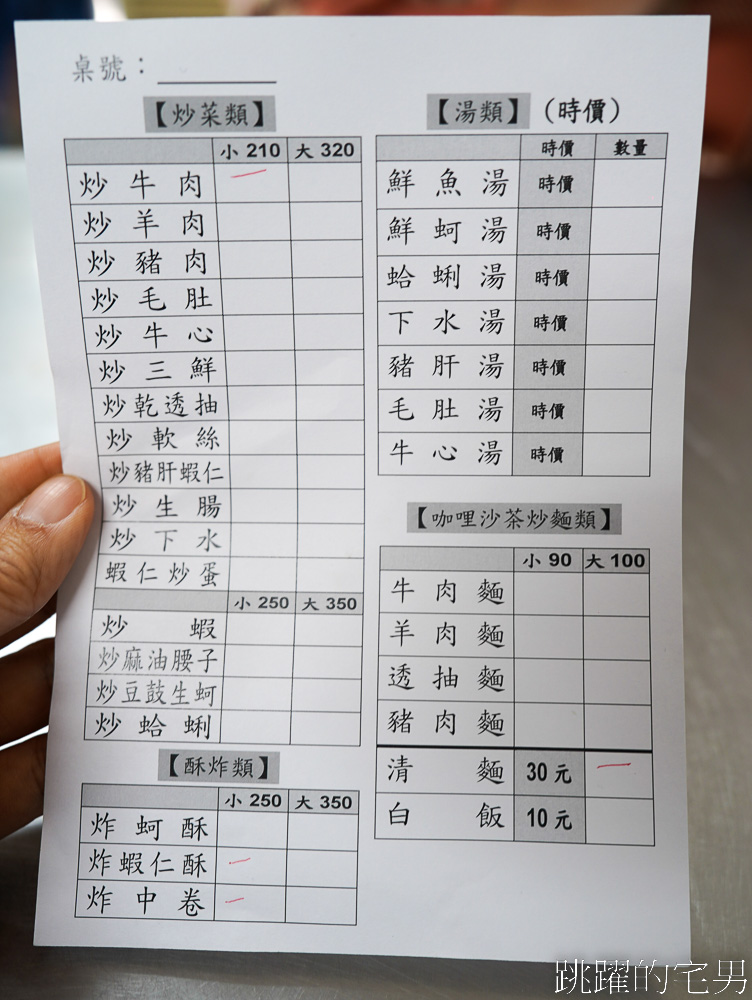 桌號：
【炒菜類】
小 210 大 320
炒牛肉 一
炒羊肉
炒豬肉
炒毛肚
炒牛心
炒三鮮
炒乾透抽
炒軟絲
炒豬肝蝦仁
炒生腸
炒下水
蝦仁炒蛋
小 250 大 350
炒蝦
炒麻油腰子
炒豆鼓生蚵
炒蛤蜊
【酥炸類】
小 250 大 350
炸蚵酥
炸蝦仁酥 一
炸中卷 一
【湯類】（時價）
時價 數量
鮮魚湯 時價
鮮蚵湯 時價
蛤蜊湯 時價
下水湯 時價
豬肝湯 時價
毛肚湯 時價
牛心湯 時價
【咖哩沙茶炒麵類】
小 90 大 100
牛肉麵
羊肉麵
透抽麵
豬肉麵
清麵 30元 一
白飯 10元
跳躍的宅男